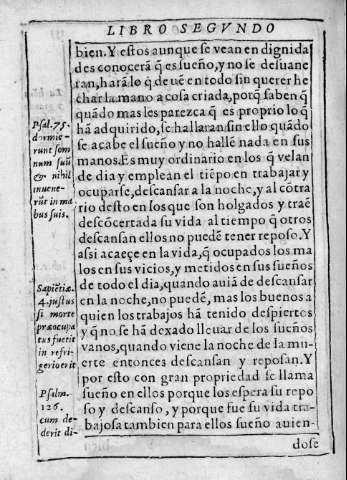 LIBRO SEGVNDO
bien. Y estos aunque se vean en dignida
des conocerã q̃ es sueño, y no se desuane
can, harã lo q̃ deuẽ en todo sin querer he
char la mano a cosa criada, porq̃ saben q̃
quãdo mas les parezca q̃ es proprio lo q̃
hã adquirido, se hallaran sin ello quãdo
se acabe el sueño y no hallẽ nada en sus
manos. Es muy ordinario en los q̃ velan
de dia y emplean el tiẽpo en trabajar y
ocuparse, descansar a la noche, y al cõtra
rio desto en los que son holgados y traẽ
descõcertada su vida al tiempo q̃ otros
descansan ellos no puedẽ tener reposo. Y
assi acaeçe en la vida, q̃ ocupados los ma
los en sus vicios, y metidos en sus sueños
de todo el dia, quando auiã de descansar
en la noche, no puedẽ, mas los buenos a
quien los trabajos hã tenido despiertos
y q̃ no se hã dexado lleuar de los sueños
vanos, quando viene la noche de la mu-
erte entonces descansan y reposan. Y
por esto con gran propriedad se llama
sueño en ellos porque los espera su repo
so y descanso, y porque fue su vida tra-
bajosa tambien para ellos sueño auien-
dose
Psal. 75.
dormie-
runt som
num suũ
& nihil
inuene-
rũt in ma
bus suis.
Sapiẽtiæ.
4. justus
si morte
præocupa
tus fuerit
in refri-
gerio erit
Psalm.
126.
cum de-
derit di-